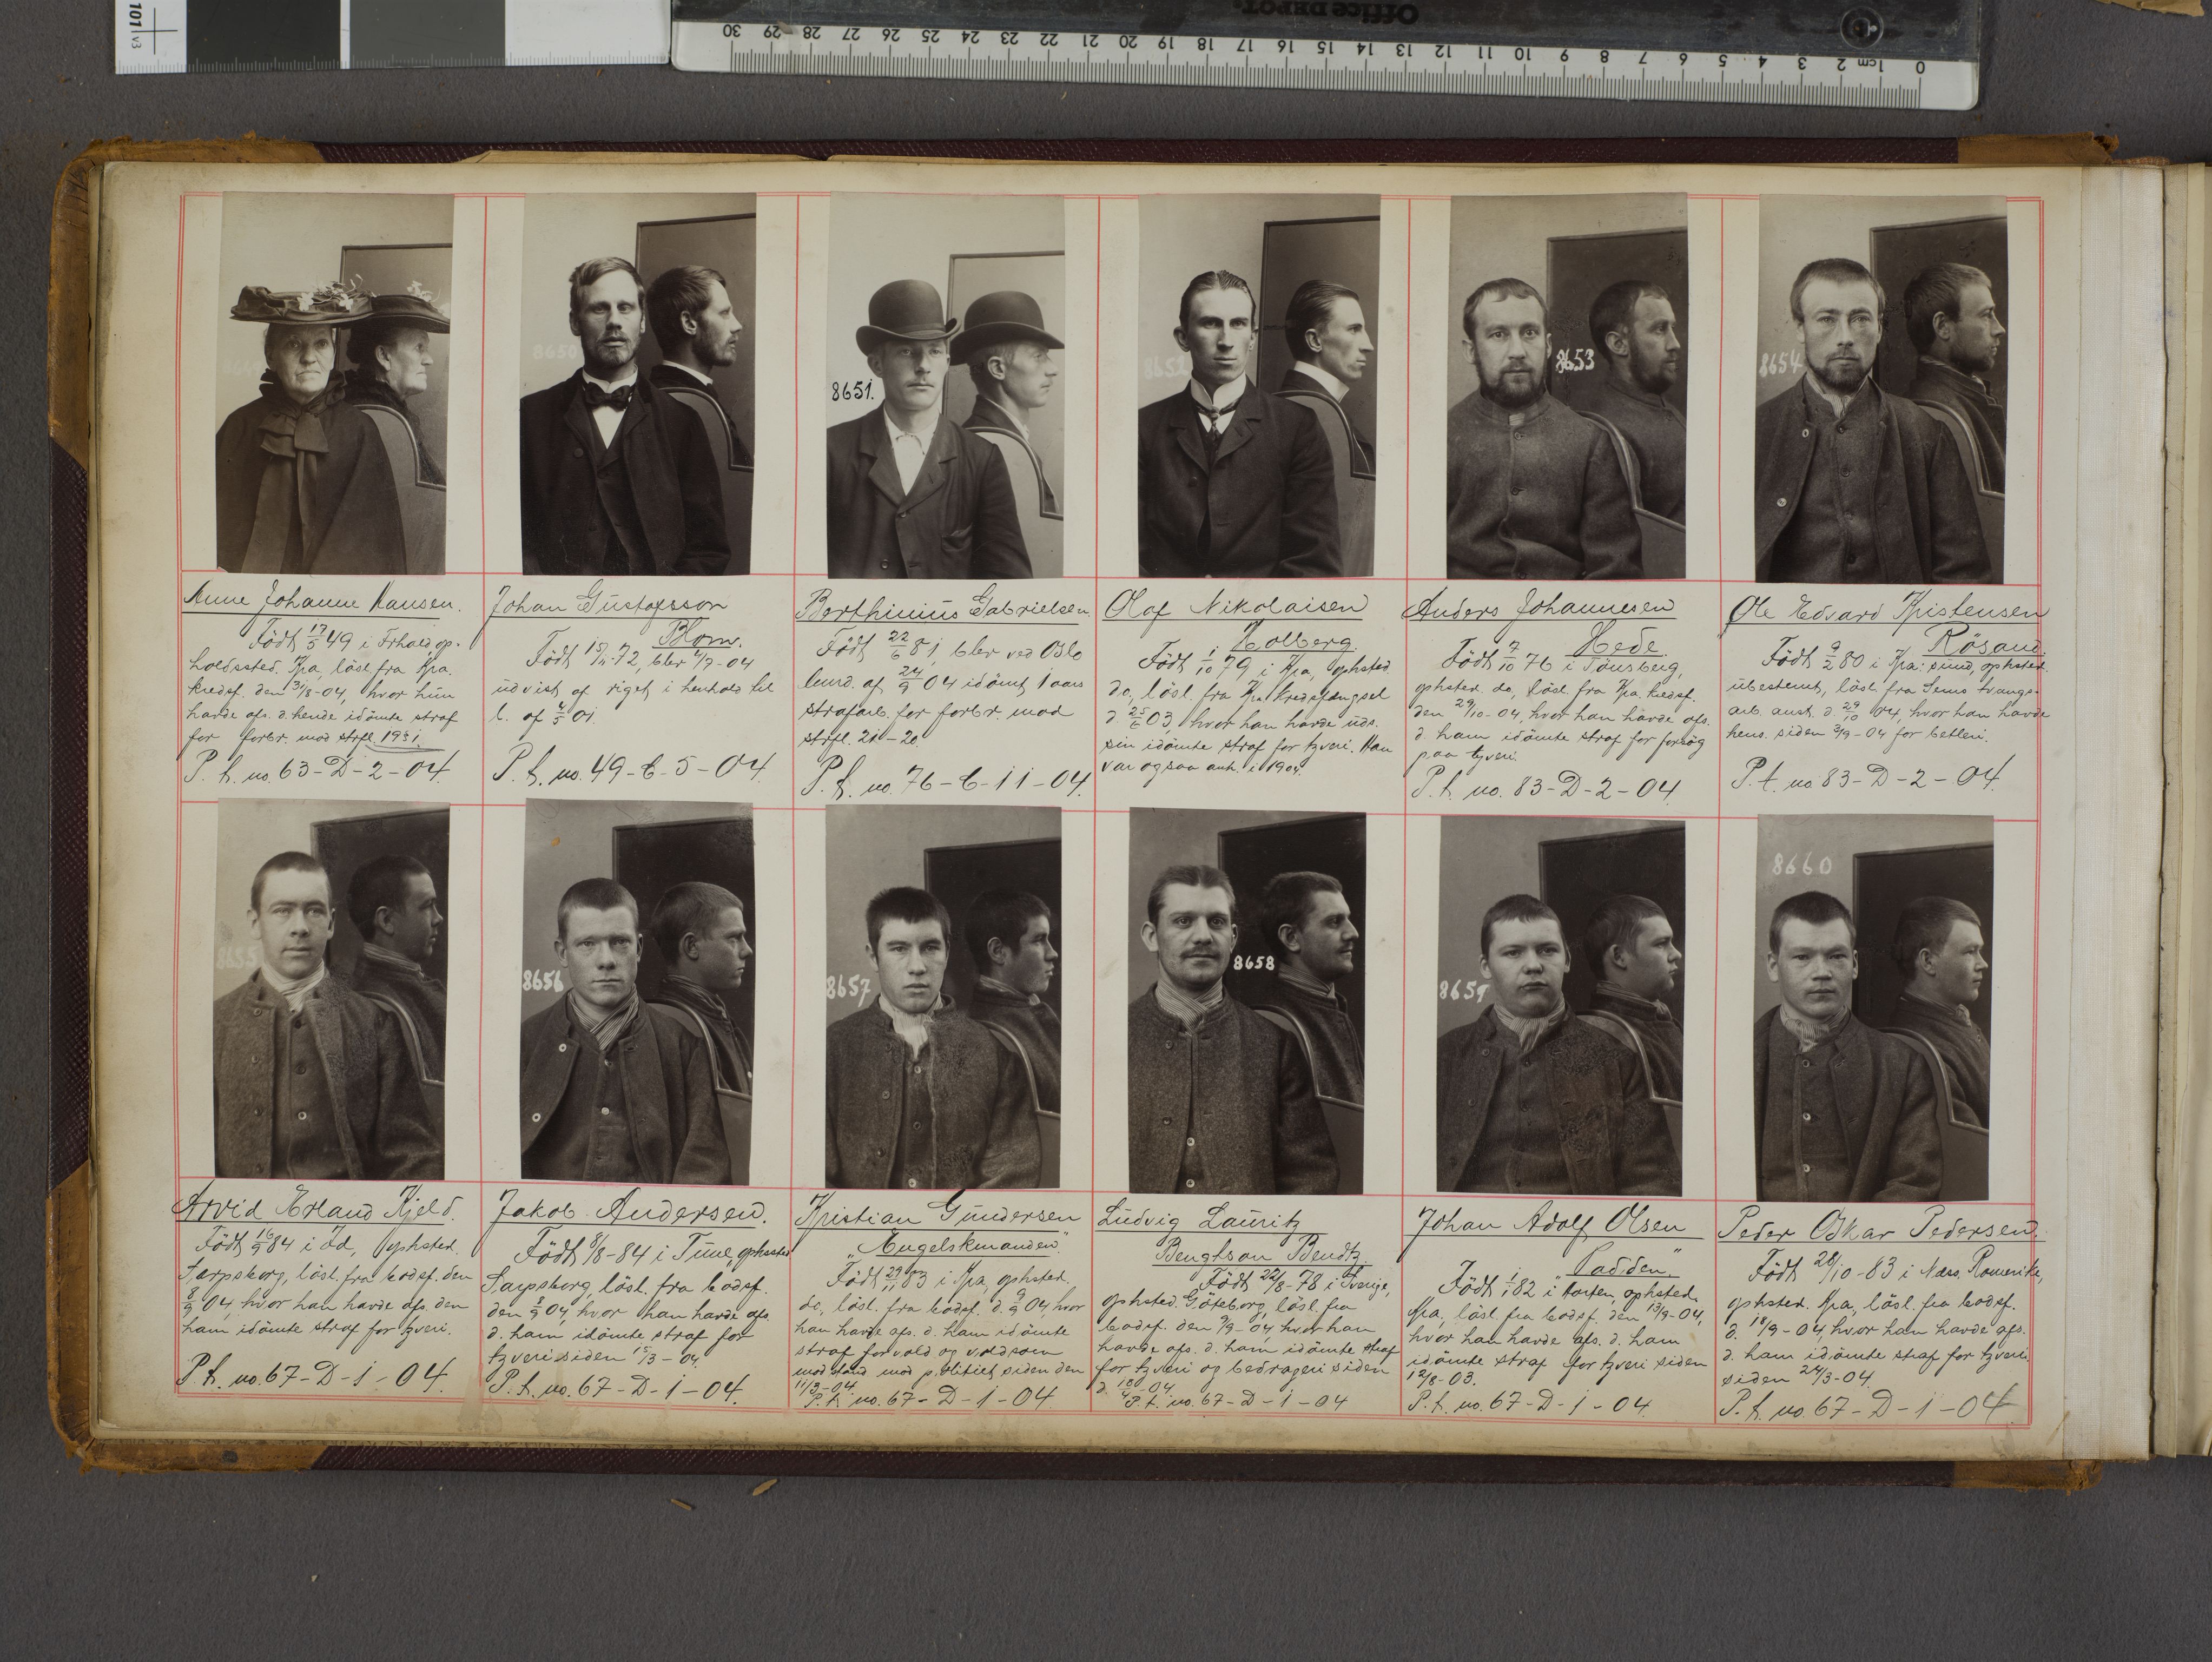 101 v3
Office DEPOT.
30 29 28 27 26 25 24 23 22 21 20 19 18 17 16 15 14 13 12 11 10 9 8 7 6 5 4 3 2 1cm 0
8650
8651.
8652
8653
8654
Anne Johanne Hansen.
Født 17/5 49 i Frhald, op-
holdssted. Kra, løsl. fra Kra.
kredsf. den 31/8-04, hvor hun
havde afs. d. hende idømte straf
for forbr. mod strfl. 1931.
P. f. no. 63-D-2-04.
Johan Gustafsson
Blom.
Født 15/11-72, blev 4/7-04
udvist af riget i henhold til
l. af 4/5 01.
P. f. no. 49-C-5-04.
Berthinius Gabrielsen.
Født 22/6 81, blev ved Oslo
lmrd. af 24/9 04 idømt 1 aars
strafarb. for forbr. mod
strfl. 21-20.
P. f. no. 76-C-11-04.
Olaf Nikolaisen
Holberg.
Født 1/10 79 i Kra, ophsted.
do, løsl. fra Kra kredsfængsel
d. 25/6 03, hvor han havde uds.
sin idømte straf for tyveri. Han
var ogsaa anh. i 1904.
Anders Johannesen
Hede.
Født 7/10 76 i Tønsberg,
ophsted. do, løsl. fra Kra kredsf.
den 29/10-04, hvor han havde afs.
d. ham idømte straf for forsøg
paa tyveri.
P. f. no. 83-D-2-04.
Ole Edvard Kristensen
Røsand.
Født 9/2 80 i Kra: sund, ophsted.
ubestemt, løsl. fra Sems tvangs-
arb. anst. d. 29/10 04, hvor han havde
hens. siden 3/9-04 for betleri.
P. f. no 83-D-2-04.
8655
8656
8657
8658
8659
8660
Arvid Erland Kjeld.
Født 16/9 84 i Id, ophsted.
Sarpsborg, løsl. fra bodsf. den
8/9 04, hvor han havde afs. den
ham idømte straf for tyveri.
P. f. no. 67-D-1-04.
Jakob Andersen.
Født 8/8-84 i Tune, ophsted
Sarpsborg, løsl. fra bodsf.
den 8/9 04, hvor han havde afs.
d. ham idømte straf for
tyveri siden 15/3-04.
P. f. no. 67-D-1-04.
Kristian Gundersen
„Engelskmanden".
Født 29/11 83 i Kra, ophsted.
do, løsl. fra bodsf. d. 9/9 04, hvor
han havde afs. d. ham idømte
straf for vold og voldsom
modstand mod politiet siden den
11/3-04.
P. f. no. 67-D-1-04.
Ludvig Lauritz
Bengtson Bendtz.
Født 22/8-78 i Sverige,
ophsted. Göteborg, løsl. fra
bodsf. den 9/9-04, hvor han
havde afs. d. ham idømte straf
for tyveri og bedrageri siden
P. f. no. 67-D-1-04
Johan Adolf Olsen
„Padden"
Født 1/1 82 i Horten, ophsted.
Kra, løsl. fra bodsf. den 13/9-04,
hvor han havde afs. d. ham
idømte straf for tyveri siden
12/8-03.
P. f. no. 67-D-1-04.
Peder Oskar Pedersen.
Født 28/10-83 i Næs, Romerike,
ophsted. Kra, løsl. fra bodsf.
d. 18/9-04, hvor han havde afs.
d. ham idømte straf for tyveri
siden 24/3-04.
P. f. no. 67-D-1-04